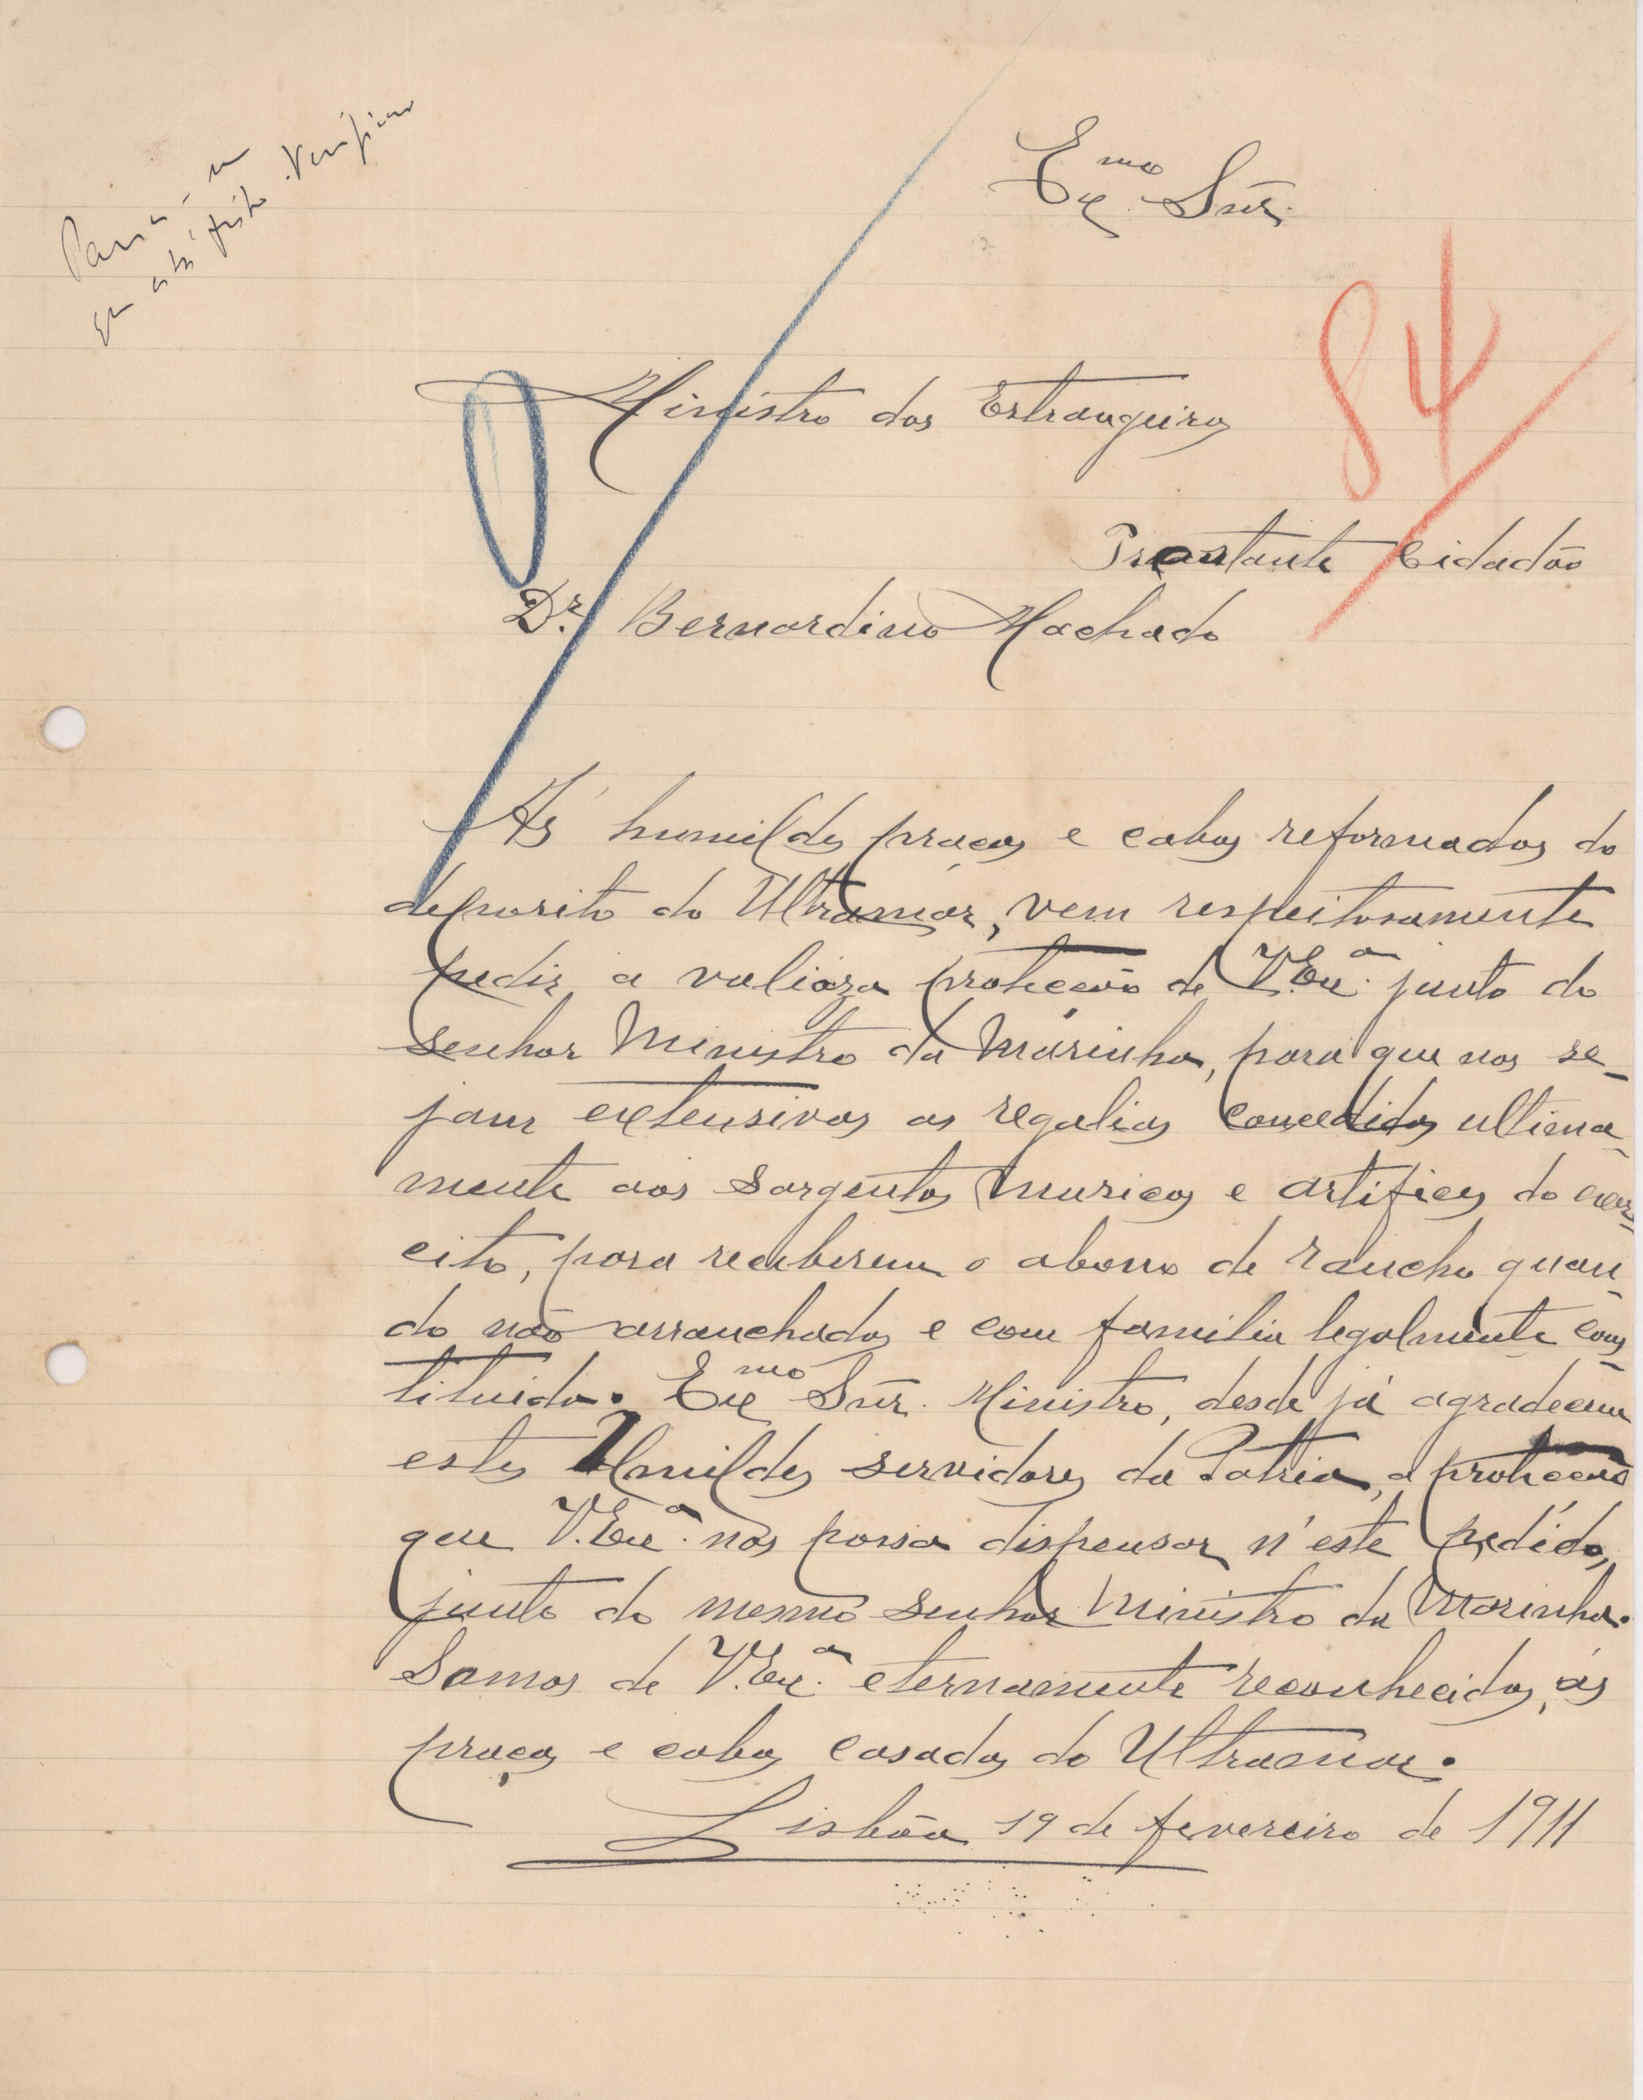 Parece-me
que está feito. Verificar
Ex.mo Snr.
84
Ministro dos Estrangeiros
Prestante Cidadão
Dr. Bernardino Machado
As humildes praças e cabos reformados do
deposito do Ultramar, vem respeitosamente
pedir a valioza protecção de V. Ex.a junto do
senhor Ministro da Marinha, para que nos se-
jam extensivas as regalias concedidas ultima-
mente aos sargentos musicos e artifices do exer-
cito, para receberem o abono de rancho quan-
do não arranchados e com familia legalmente cons-
tituida. Ex.mo Snr. Ministro, desde já agradecem
estes Humildes servidores da Patria, a protecção
que V. Ex.a nos possa dispensar n'este pedido,
junto do mesmo senhor Ministro da Marinha.
Somos de V. Ex.a eternamente reconhecidos, ás
praças e cabos casados do Ultramar.
Lisbôa 19 de fevereiro de 1911